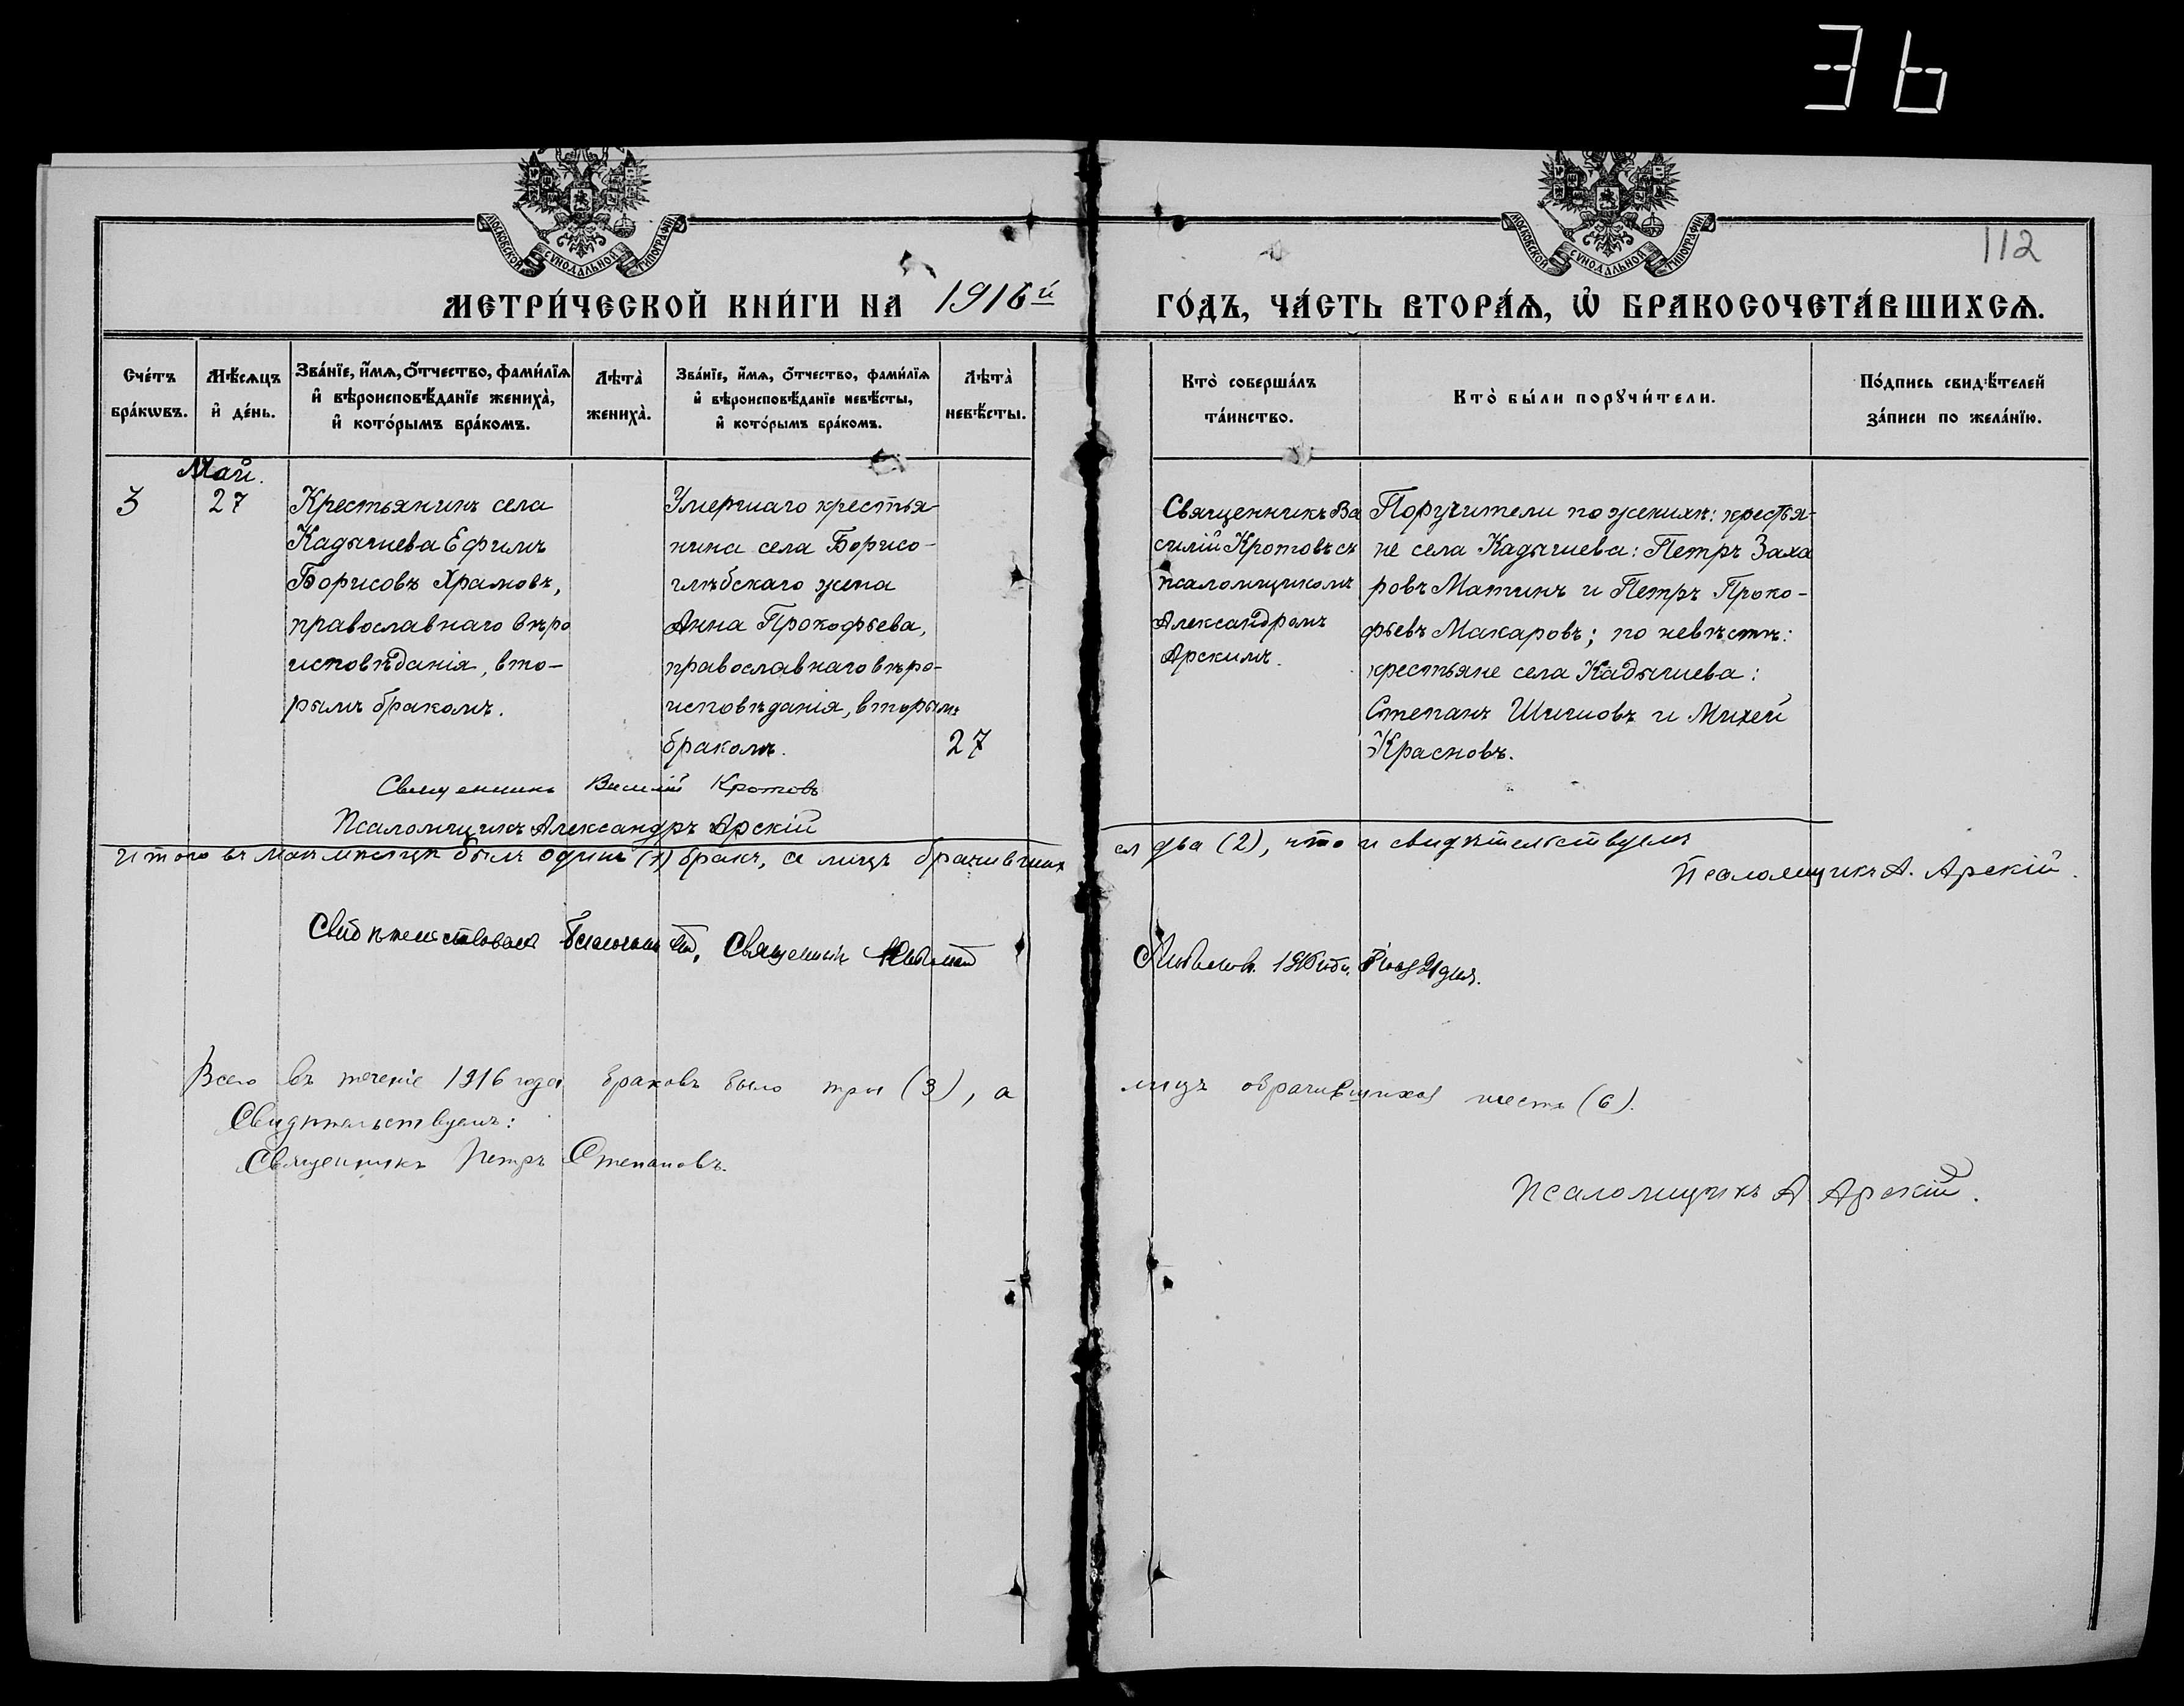 36
112
МОСКОВСКОЙ СѴНОДАЛЬНОЙ ТИПОГРАФІИ
МОСКОВСКОЙ СѴНОДАЛЬНОЙ ТИПОГРАФІИ
МЕТРИ́ЧЕСКОЙ КНИ́ГИ НА 1916й ГО́ДЪ, ЧА́СТЬ ВТОРА́Ѧ, Ѽ БРАКОСОЧЕТА́ВШИХСѦ.
Сче́тъ
бра́кѡвъ.
Мѣ́сѧцъ
и҆ де́нь.
Зва́нїе, и҆́мѧ, ѻ҆́тчество, фами́лїѧ
и҆ вѣроисповѣ́данїе жениха̀,
и҆ кото́рымъ бра́комъ.
Лѣта̀
жениха̀.
Зва́нїе, и҆́мѧ, ѻ҆́тчество, фами́лїѧ
и҆ вѣроисповѣ́данїе невѣ́сты,
и҆ кото́рымъ бра́комъ.
Лѣта̀
невѣ́сты.
Кто̀ соверша́лъ
та́инство.
Кто̀ бы́ли порꙋчи́тели.
По́дпись свидѣ́телей
за́писи по жела́нїю.
Май.
3
27
Крестьянинъ села
Кадышева Ефимъ
Борисовъ Храмовъ,
православнаго вѣро
исповѣданія, вто-
рымъ бракомъ.
Умершаго крестья-
нина села Борисо-
глѣбскаго жена
Анна Прокофьева,
православнаго вѣро-
исповѣданія, вторымъ
бракомъ.
27
Священникъ Ва
силій Кротовъ съ
псаломщикомъ
Александромъ
Арскимъ.
Поручители по женихѣ: крестья-
не села Кадышева: Петръ Заха
ровъ Матинъ и Петръ Проко-
фьевъ Макаровъ; по невѣстѣ:
крестьяне села Кадышева:
Степанъ Шишовъ и Михей
Красновъ.
Священникъ Василій Кротовъ
Псаломщикъ Александръ Арскій
Итого въ маѣ мѣсяцѣ былъ одинъ (1) бракъ, а лицъ брачивших
ся два (2), что и свидѣтельствуемъ
Псаломщикъ А. Арскій.
Свидѣтельствовалъ Священникъ
Всего въ теченіе 1916 года браковъ было три (3), а лицъ обрачившихся шесть (6).
Свидѣтельствуемъ:
Священникъ Петръ Степановъ.
Псаломщикъ А Арскій.